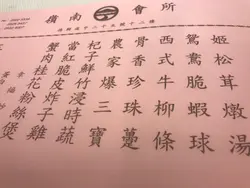 嶺南會所
姬松茸燉湯
鴛鴦脆蝦球
西式牛柳條
骨香珍珠躉
農家爆三寶
杞子鮮竹浸時蔬
當紅脆皮炸子雞
蟹肉桂花粉絲煲